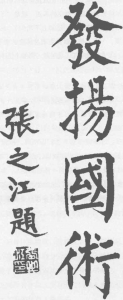 發揚國術
張之江題